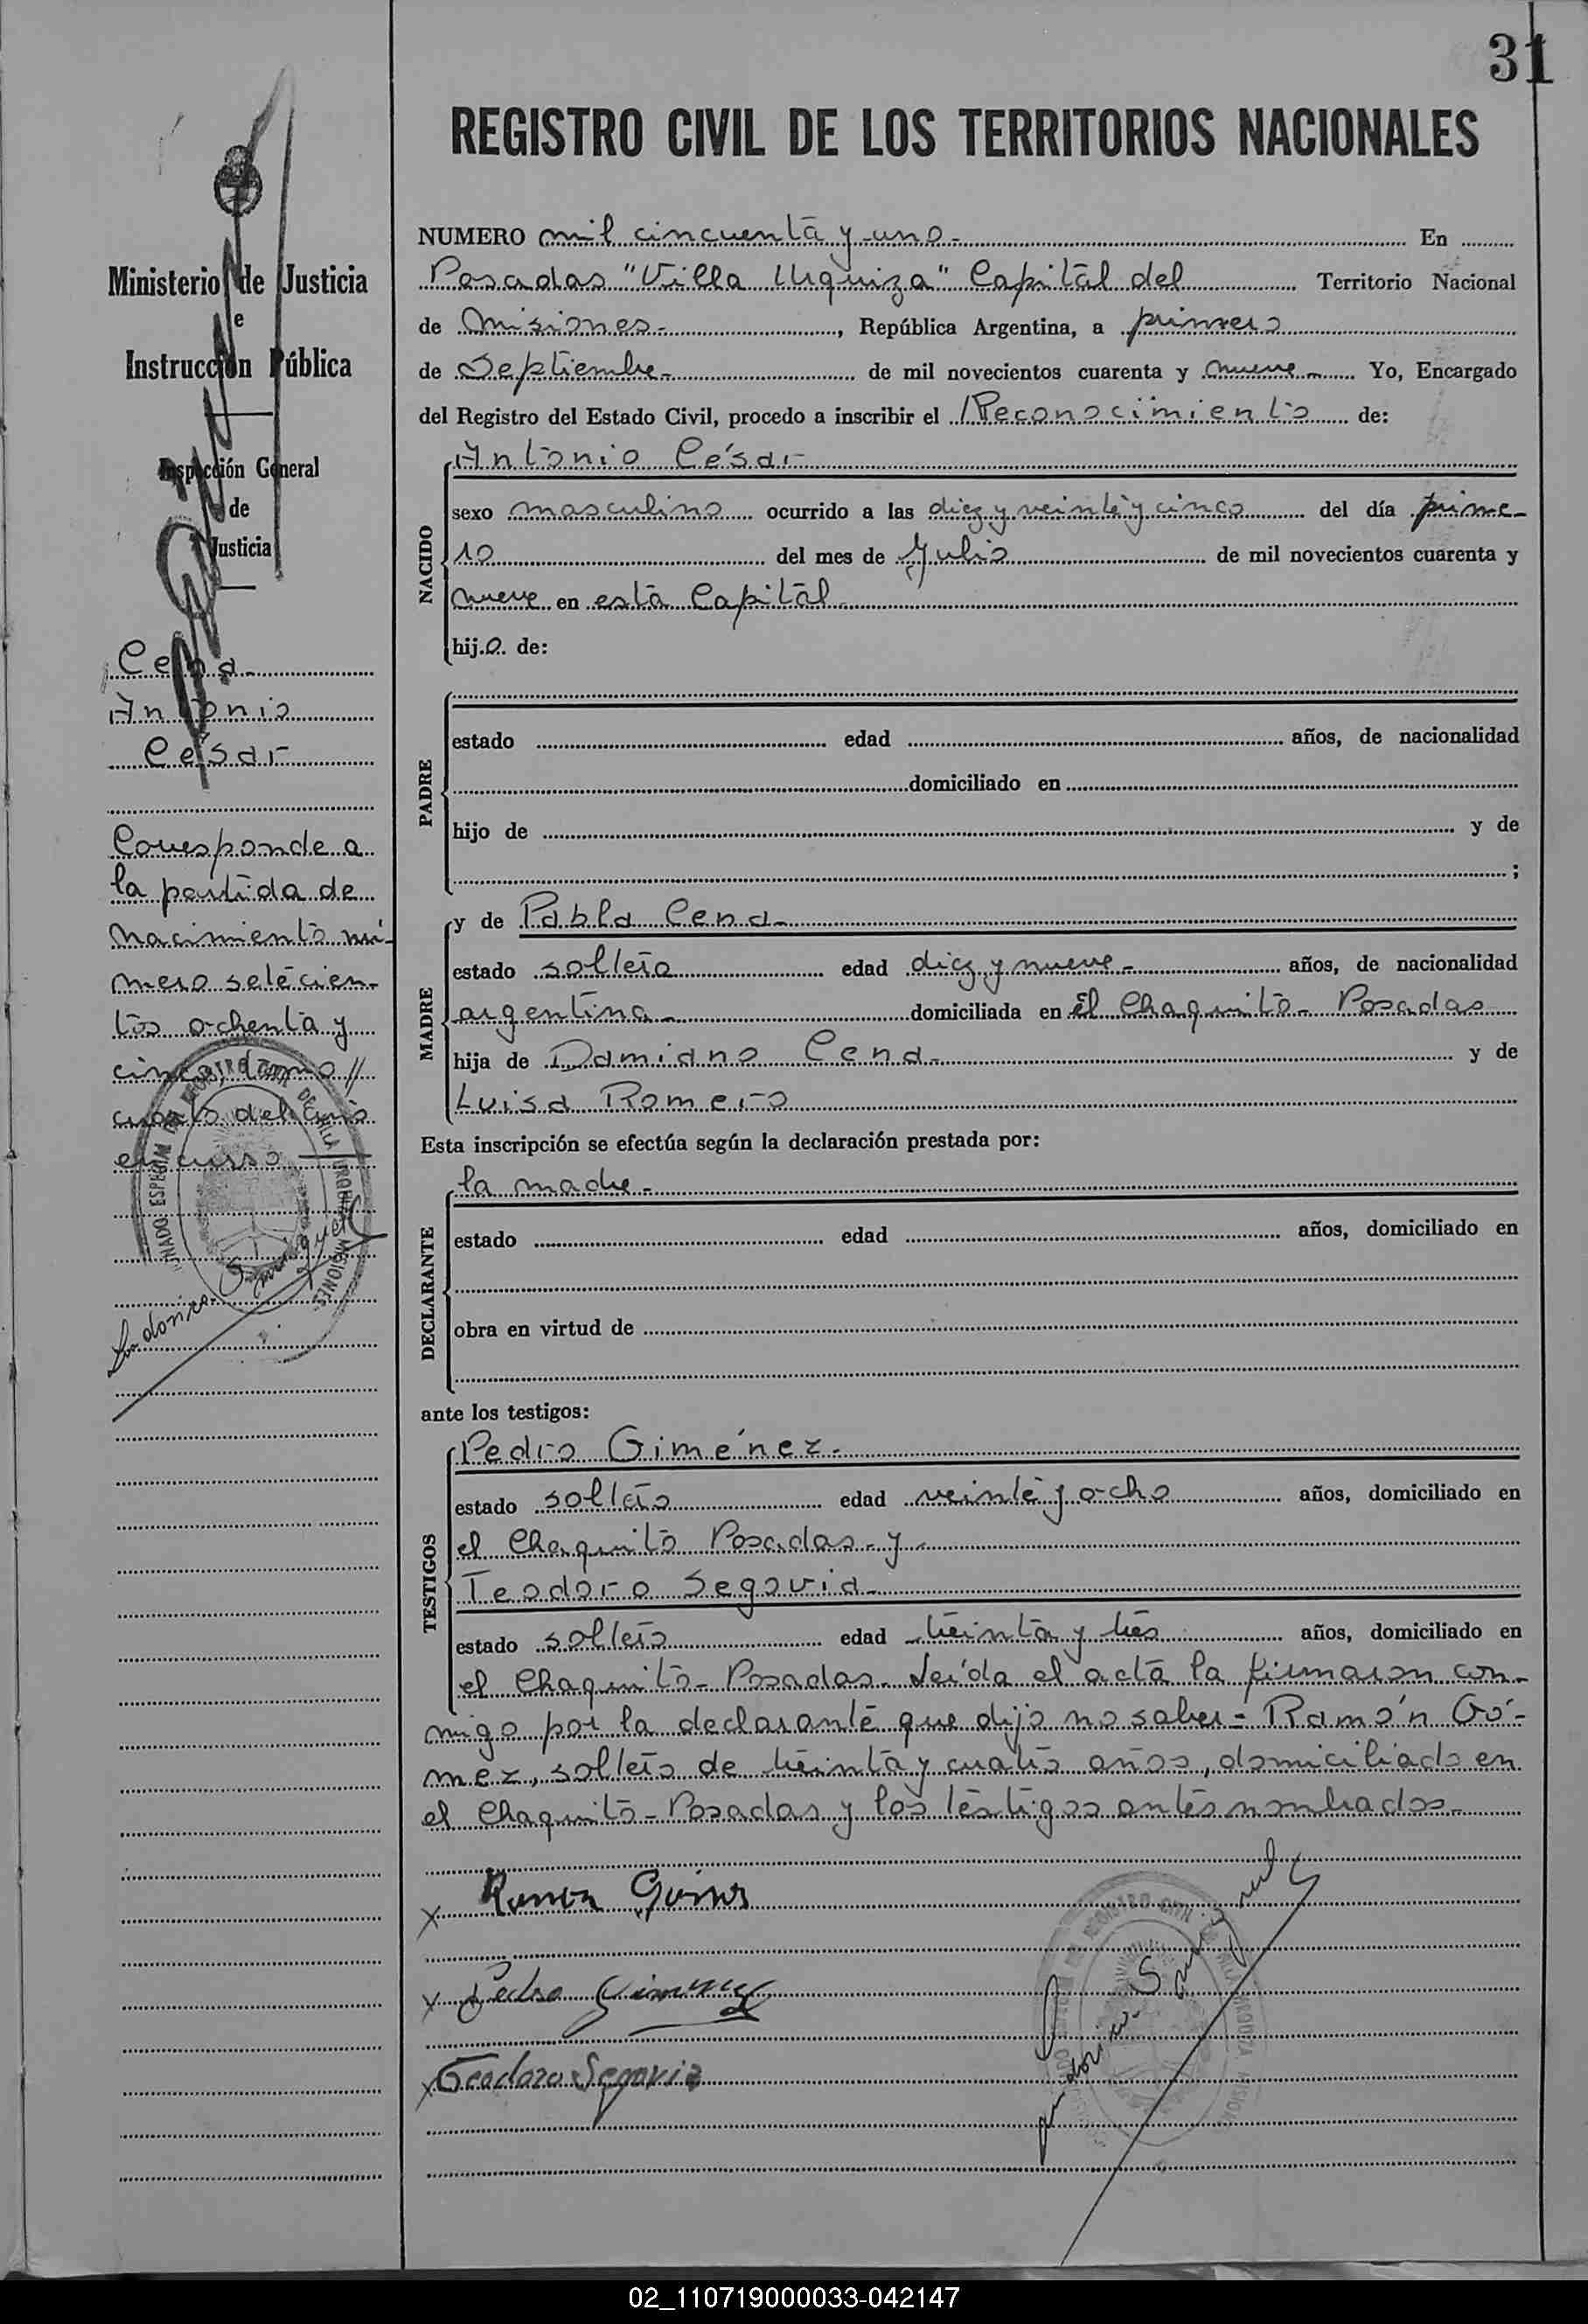 31
REGISTRO CIVIL DE LOS TERRITORIOS NACIONALES
Ministerio de Justicia
e
Instrucción Pública
Inspección General
de
Justicia
Cena
Antonio
César
Corresponde a
la partida de
nacimiento nú-
mero setecien-
tos ochenta y
cinco, tomo //
cuarto del año
en curso
NUMERO mil cincuenta y uno - En
Posadas "Villa Urquiza" Capital del Territorio Nacional
de Misiones - , República Argentina, a primero
de Septiembre - de mil novecientos cuarenta y nueve - Yo, Encargado
del Registro del Estado Civil, procedo a inscribir el Reconocimiento de:
Antonio César
NACIDO
sexo masculino ocurrido a las diez y veinte y cinco del día prime-
ro del mes de Julio de mil novecientos cuarenta y
nueve en esta Capital
hij.o. de:
PADRE
estado edad años, de nacionalidad
domiciliado en
hijo de y de
;
MADRE
y de Pabla Cena -
estado soltera edad diez y nueve - años, de nacionalidad
argentina - domiciliada en El Chaquito - Posadas
hija de Damiano Cena - y de
Luisa Romero
Esta inscripción se efectúa según la declaración prestada por:
DECLARANTE
la madre -
estado edad años, domiciliado en
obra en virtud de
ante los testigos:
TESTIGOS
Pedro Giménez -
estado soltero edad veinte y ocho años, domiciliado en
el Chaquito Posadas - y
Teodoro Segovia -
estado soltero edad treinta y tres años, domiciliado en
el Chaquito - Posadas. Leída el acta la firmaron con-
migo por la declarante que dijo no saber - Ramón Gó-
mez, soltero de treinta y cuatro años, domiciliado en
el Chaquito - Posadas y los testigos antes nombrados -
x Ramon Gómez
x Pedro Gimenez
x Teodoro Segovia
02_110719000033-042147